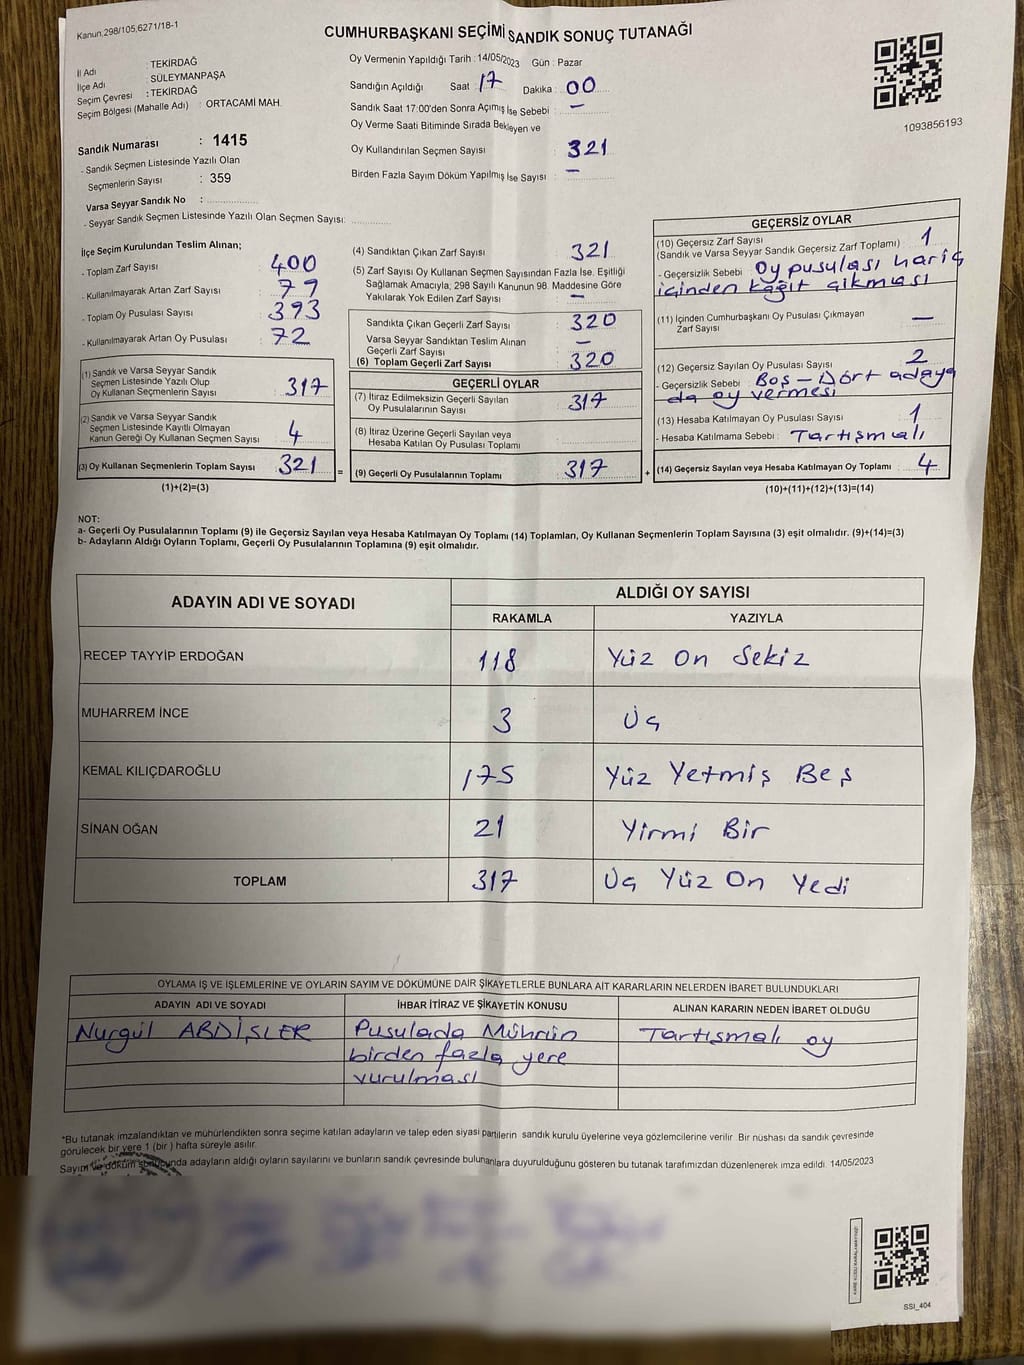 Kanun,298/105,6271/18-1
CUMHURBAŞKANI SEÇİMİ SANDIK SONUÇ TUTANAĞI
İl Adı : TEKİRDAĞ
İlçe Adı : SÜLEYMANPAŞA
Seçim Çevresi : TEKİRDAĞ
Seçim Bölgesi (Mahalle Adı) : ORTACAMİ MAH.
Oy Vermenin Yapıldığı Tarih : 14/05/2023 Gün : Pazar
Sandığın Açıldığı Saat : 17 Dakika : 00
Sandık Saat 17:00'den Sonra Açımış İse Sebebi : —
Oy Verme Saati Bitiminde Sırada Bekleyen ve
Oy Kullandırılan Seçmen Sayısı : 321
Birden Fazla Sayım Döküm Yapılmış İse Sayısı : —
1093856193
Sandık Numarası : 1415
- Sandık Seçmen Listesinde Yazılı Olan
Seçmenlerin Sayısı : 359
Varsa Seyyar Sandık No :
- Seyyar Sandık Seçmen Listesinde Yazılı Olan Seçmen Sayısı:
İlçe Seçim Kurulundan Teslim Alınan;
- Toplam Zarf Sayısı : 400
- Kullanılmayarak Artan Zarf Sayısı : 79
- Toplam Oy Pusulası Sayısı : 393
- Kullanılmayarak Artan Oy Pusulası : 72
(1) Sandık ve Varsa Seyyar Sandık
Seçmen Listesinde Yazılı Olup
Oy Kullanan Seçmenlerin Sayısı : 317
(2) Sandık ve Varsa Seyyar Sandık
Seçmen Listesinde Kayıtlı Olmayan
Kanun Gereği Oy Kullanan Seçmen Sayısı : 4
(3) Oy Kullanan Seçmenlerin Toplam Sayısı : 321
(1)+(2)=(3)
(4) Sandıktan Çıkan Zarf Sayısı : 321
(5) Zarf Sayısı Oy Kullanan Seçmen Sayısından Fazla İse. Eşitliği
Sağlamak Amacıyla, 298 Sayılı Kanunun 98. Maddesine Göre
Yakılarak Yok Edilen Zarf Sayısı : —
Sandıkta Çıkan Geçerli Zarf Sayısı : 320
Varsa Seyyar Sandıktan Teslim Alınan
Geçerli Zarf Sayısı : —
(6) Toplam Geçerli Zarf Sayısı : 320
GEÇERLİ OYLAR
(7) İtiraz Edilmeksizin Geçerli Sayılan
Oy Pusulalarının Sayısı : 317
(8) İtiraz Üzerine Geçerli Sayılan veya
Hesaba Katılan Oy Pusulası Toplamı :
= (9) Geçerli Oy Pusulalarının Toplamı : 317 +
GEÇERSİZ OYLAR
(10) Geçersiz Zarf Sayısı
(Sandık ve Varsa Seyyar Sandık Geçersiz Zarf Toplamı) : 1
- Geçersizlik Sebebi : Oy pusulası hariç
içinden kağıt çıkması
(11) İçinden Cumhurbaşkanı Oy Pusulası Çıkmayan
Zarf Sayısı : —
(12) Geçersiz Sayılan Oy Pusulası Sayısı : 2
- Geçersizlik Sebebi : Boş – Dört adaya
da oy vermesi
(13) Hesaba Katılmayan Oy Pusulası Sayısı : 1
- Hesaba Katılmama Sebebi : Tartışmalı
(14) Geçersiz Sayılan veya Hesaba Katılmayan Oy Toplamı : 4
(10)+(11)+(12)+(13)=(14)
NOT:
a- Geçerli Oy Pusulalarının Toplamı (9) ile Geçersiz Sayılan veya Hesaba Katılmayan Oy Toplamı (14) Toplamları, Oy Kullanan Seçmenlerin Toplam Sayısına (3) eşit olmalıdır. (9)+(14)=(3)
b- Adayların Aldığı Oyların Toplamı, Geçerli Oy Pusulalarının Toplamına (9) eşit olmalıdır.
ADAYIN ADI VE SOYADI ALDIĞI OY SAYISI
RAKAMLA YAZIYLA
RECEP TAYYİP ERDOĞAN 118 Yüz On Sekiz
MUHARREM İNCE 3 Üç
KEMAL KILIÇDAROĞLU 175 Yüz Yetmiş Beş
SİNAN OĞAN 21 Yirmi Bir
TOPLAM 317 Üç Yüz On Yedi
OYLAMA İŞ VE İŞLEMLERİNE VE OYLARIN SAYIM VE DÖKÜMÜNE DAİR ŞİKAYETLERLE BUNLARA AİT KARARLARIN NELERDEN İBARET BULUNDUKLARI
ADAYIN ADI VE SOYADI İHBAR İTİRAZ VE ŞİKAYETİN KONUSU ALINAN KARARIN NEDEN İBARET OLDUĞU
Nurgül ABDİŞLER Pusulada Mührün Tartışmalı oy
birden fazla yere
vurulması
*Bu tutanak imzalandıktan ve mühürlendikten sonra seçime katılan adayların ve talep eden siyasi partilerin sandık kurulu üyelerine veya gözlemcilerine verilir. Bir nüshası da sandık çevresinde
görülecek bir yere 1 (bir ) hafta süreyle asılır.
Sayım ve döküm sonucunda adayların aldığı oyların sayılarını ve bunların sandık çevresinde bulunanlara duyurulduğunu gösteren bu tutanak tarafımızdan düzenlenerek imza edildi. 14/05/2023
SSI_404